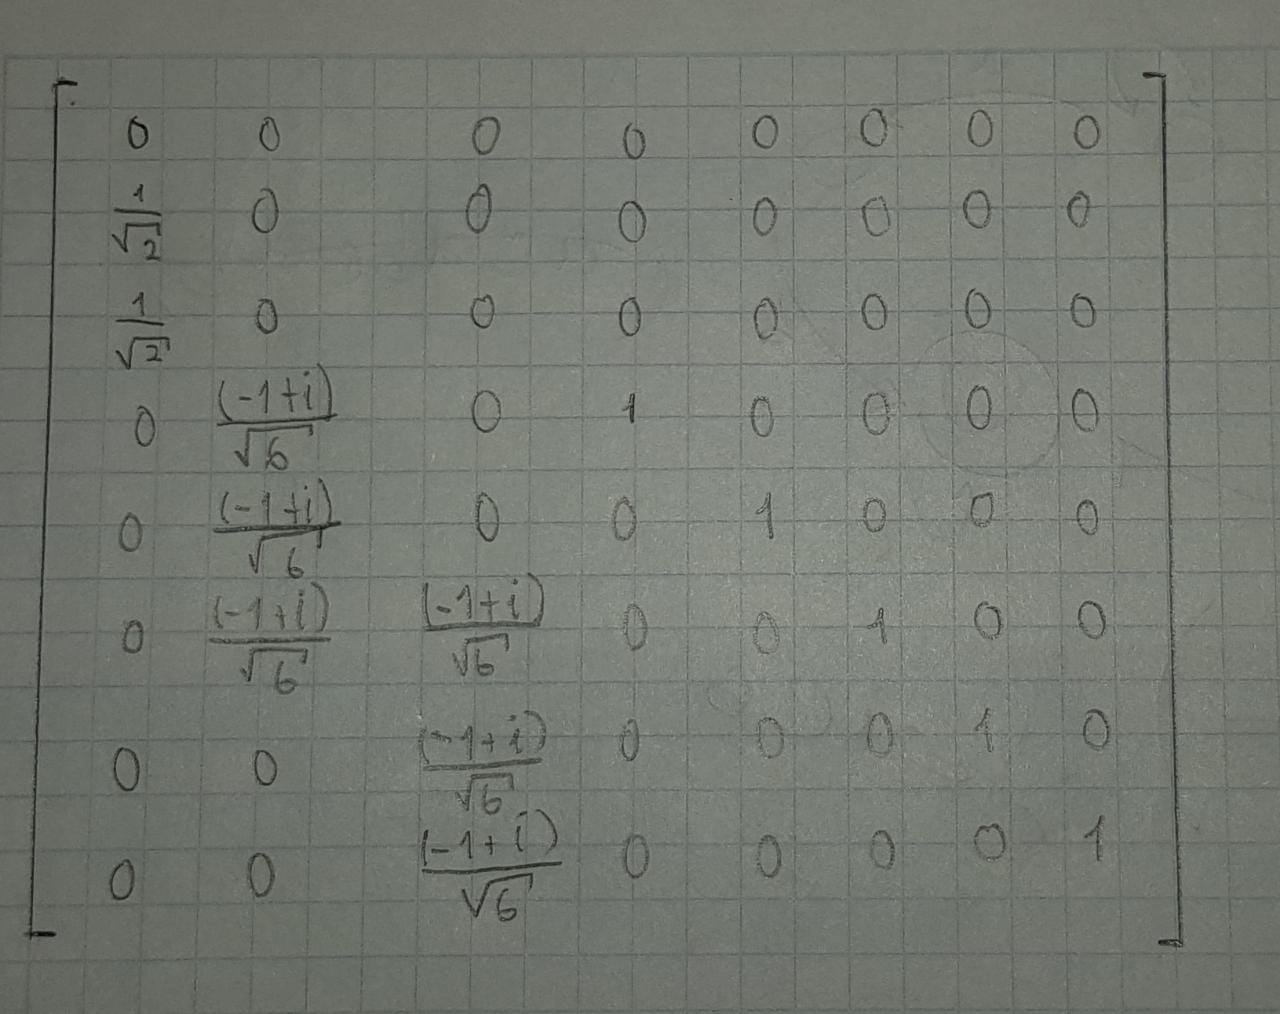 0 0 0 0 0 0 0 0
1/√2 0 0 0 0 0 0 0
1/√2 0 0 0 0 0 0 0
0 (-1+i)/√6 0 1 0 0 0 0
0 (-1+i)/√6 0 0 1 0 0 0
0 (-1+i)/√6 (-1+i)/√6 0 0 1 0 0
0 0 (-1+i)/√6 0 0 0 1 0
0 0 (-1+i)/√6 0 0 0 0 1